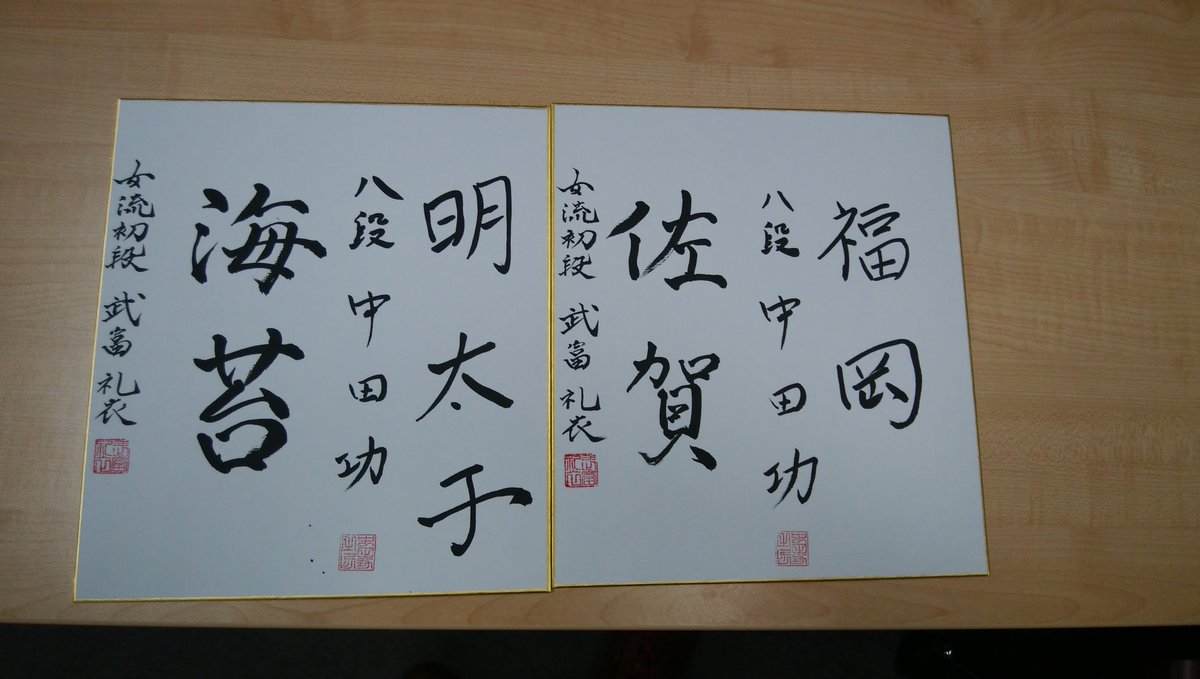 福岡
八段 中田功
佐賀
女流初段 武富礼衣
明太子
八段 中田功
海苔
女流初段 武富礼衣